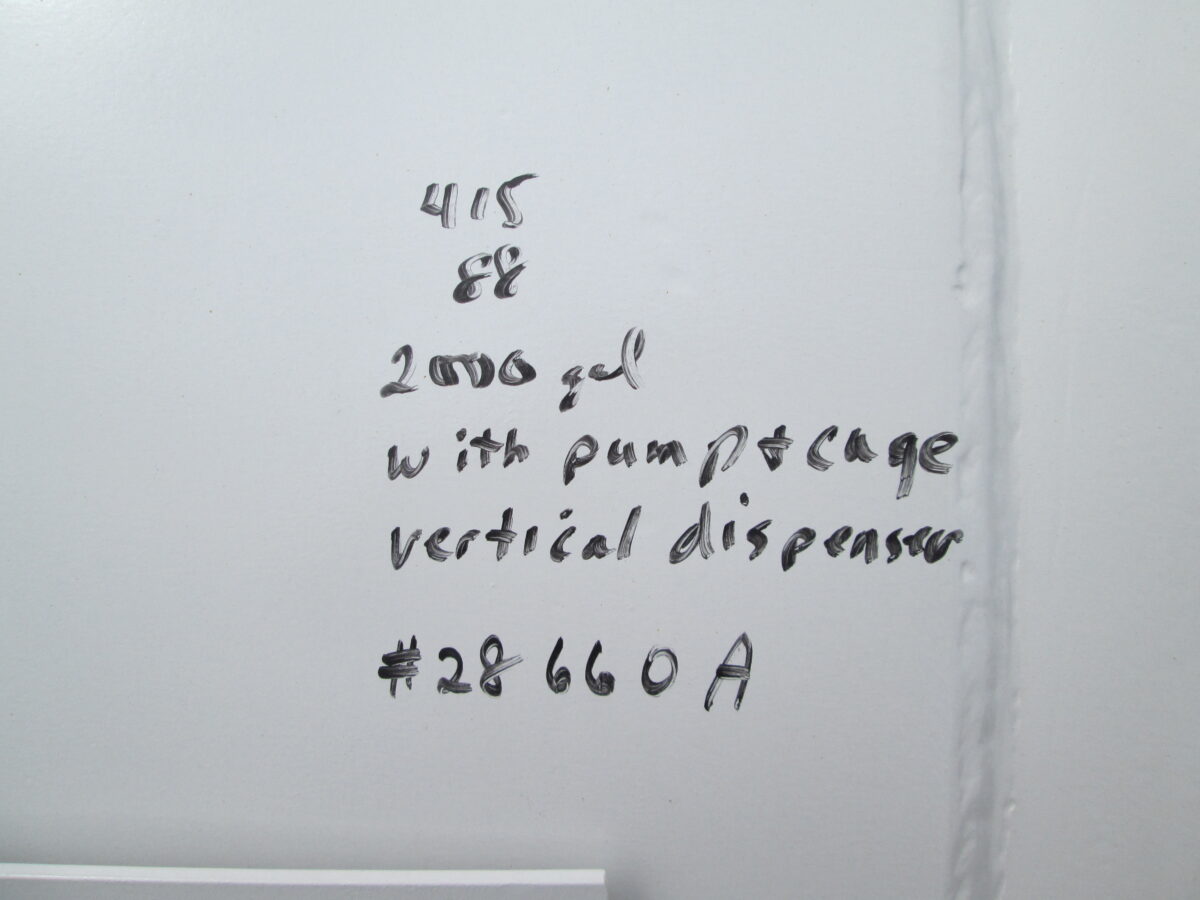 415
88
2000 gal
with pump + cage
vertical dispenser
#28660A